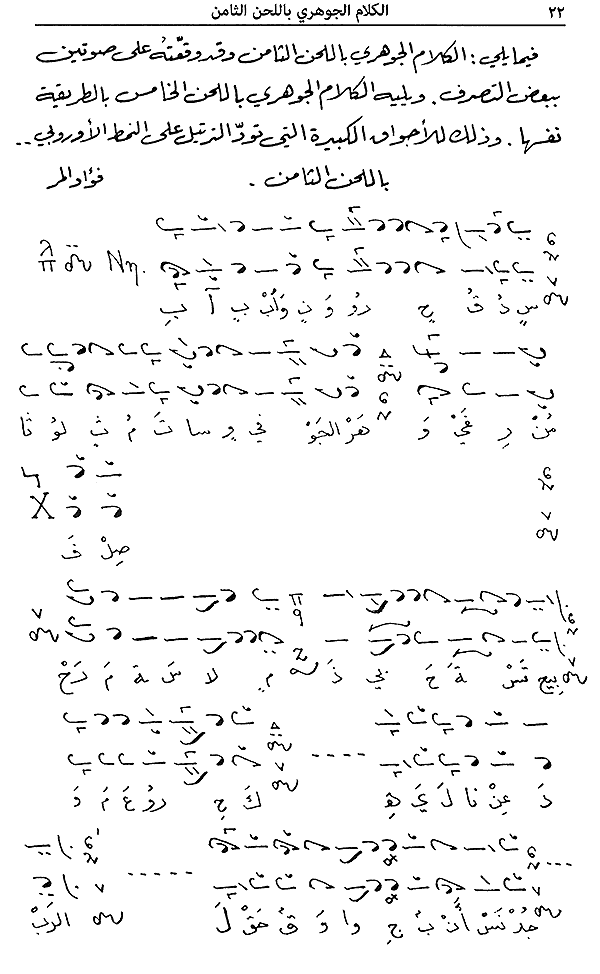 ٢٢ الكلام الجوهري باللحن الثامن
فيما يلي: الكلام الجوهري باللحن الثامن وقد وقّعتهُ على صوتين
ببعض التصرف. ويليه الكلام الجوهري باللحن الخامس بالطريقة
نفسها. وذلك للأجواق الكبيرة التي تودّ الترتيل على النمط الأوروبي..
باللحن الثامن. فؤاد المر
Νη.
سٍ ذُ قُ حٍ رُوْ وَنِ وَأَبْ بِ آ بِ
مُنْ رِ فَيْ وَ هَرْ الجَوْ في وِ سا تَ مُ ثِ لوُ ثا
صِلْ فَ
بِيحِ تَسْ ةَ حَ نِي ذَ مٍ لا سَ ةَ مَ رَحْ
دَ عِنْ نا لَ يَ هِ كَ حِ روُ عَ مَ وَ
جُدْ نَسْ أَنْ بُ جِ وا وَ قُ حَقْ لَ الرَبْ